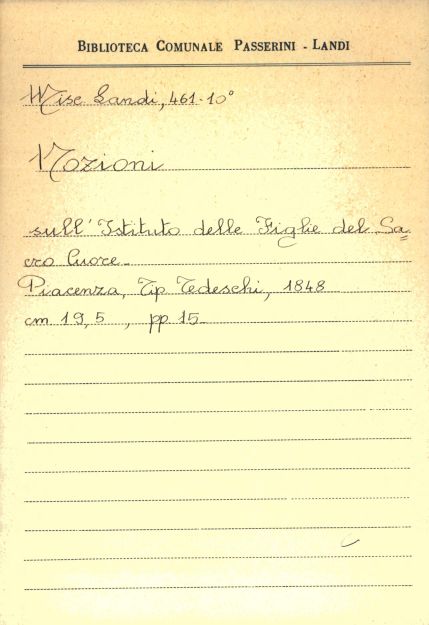 BIBLIOTECA COMUNALE PASSERINI - LANDI
Misc Landi, 461-10°
Nozioni
sull' Istituto delle Figlie del Sa=
cro Cuore -
Piacenza, Tip Tedeschi, 1848
cm 19,5 , pp 15-